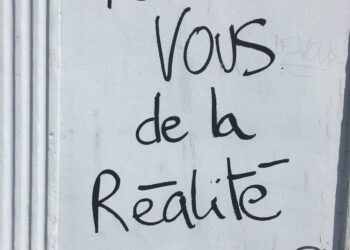 VOUS
de la
Réalité